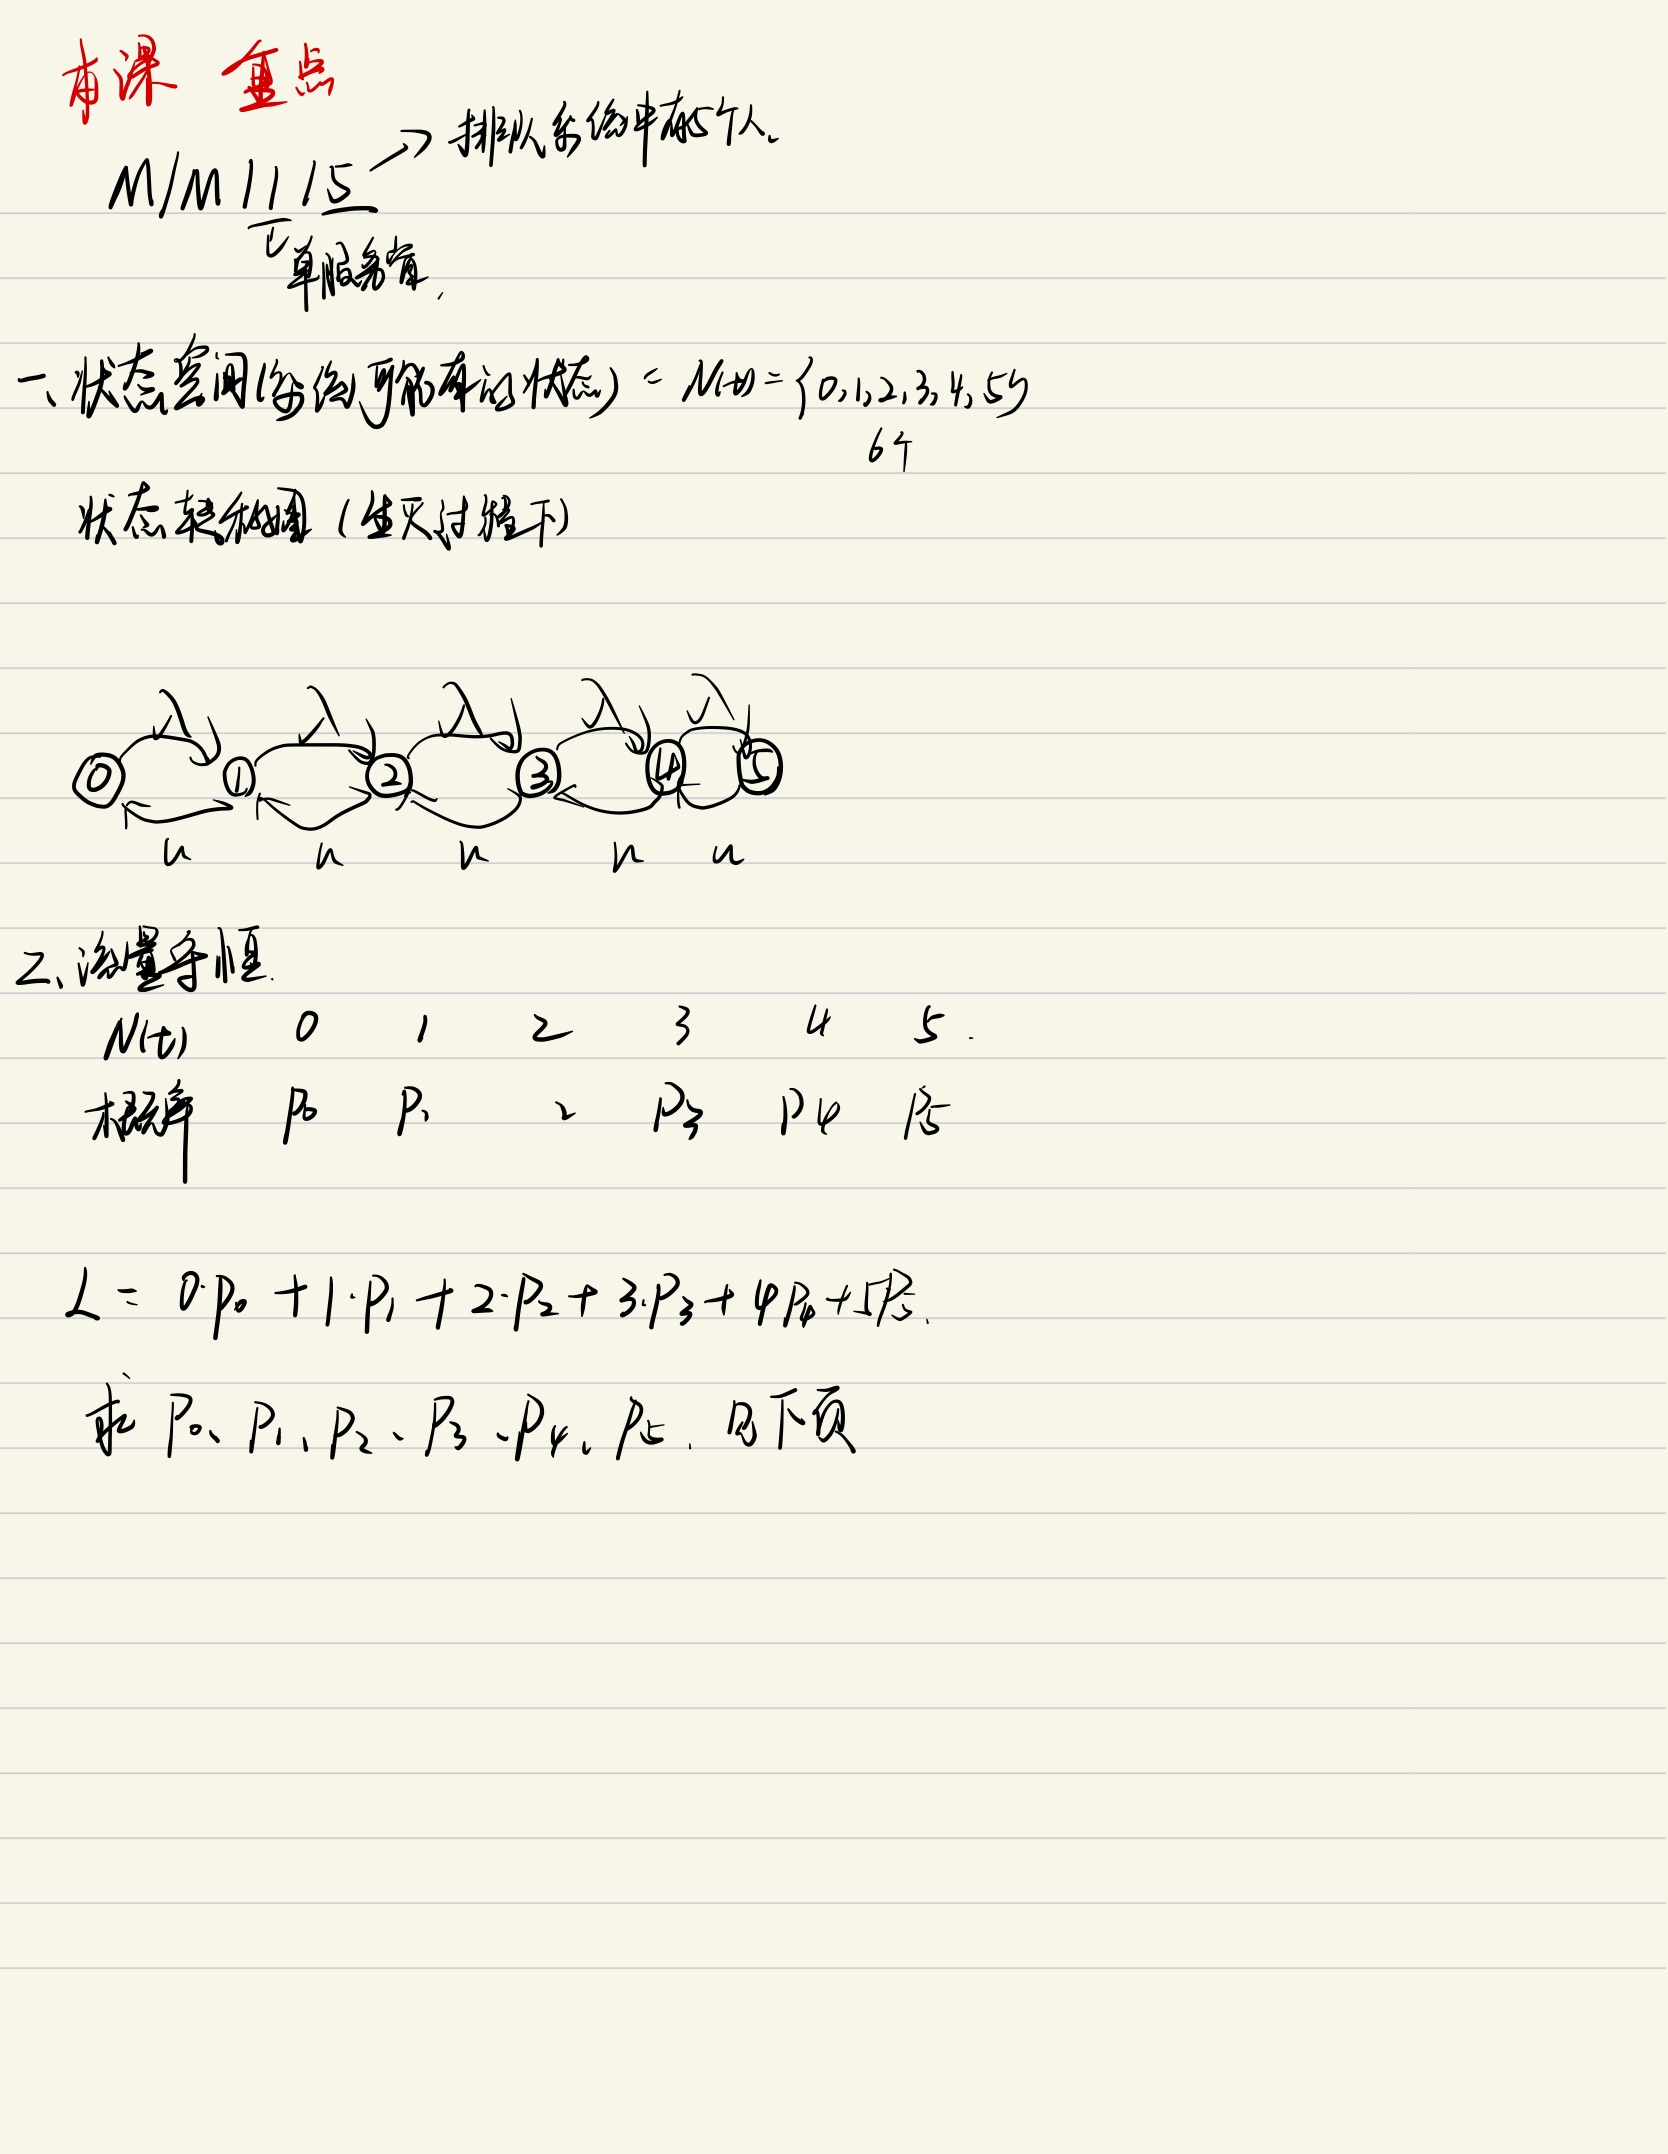 本课 重点
M/M/1/5 → 排队系统中有5个人.
单服务官.
一、状态空间(系统可能有的状态) = N(t) = {0,1,2,3,4,5}
6个
状态转移图 (生灭过程下)
λ λ λ λ λ
0 1 2 3 4 5
u u u u u
二、流量守恒.
N(t) 0 1 2 3 4 5.
概率 P0 P1 2 P3 P4 P5
L = 0·P0 + 1·P1 + 2·P2 + 3·P3 + 4P4 + 5P5.
求 P0、P1、P2、P3、P4、P5. 见下页